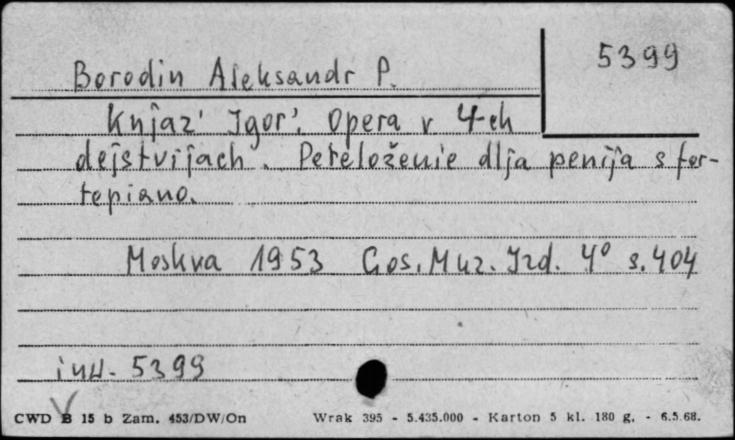 5399
Borodin Aleksandr P.
Knjaz' Igor'. Opera v 4-ch
dejstvijach. Pereloženie dlja penija s for-
tepiano.
Moskva 1953 Gos. Muz. Izd. 4° s. 404
inw. 5399
CWD B 15 b Zam. 453/DW/On Wrak 395 - 5.435.000 - Karton 5 kl. 180 g. - 6.5.68.